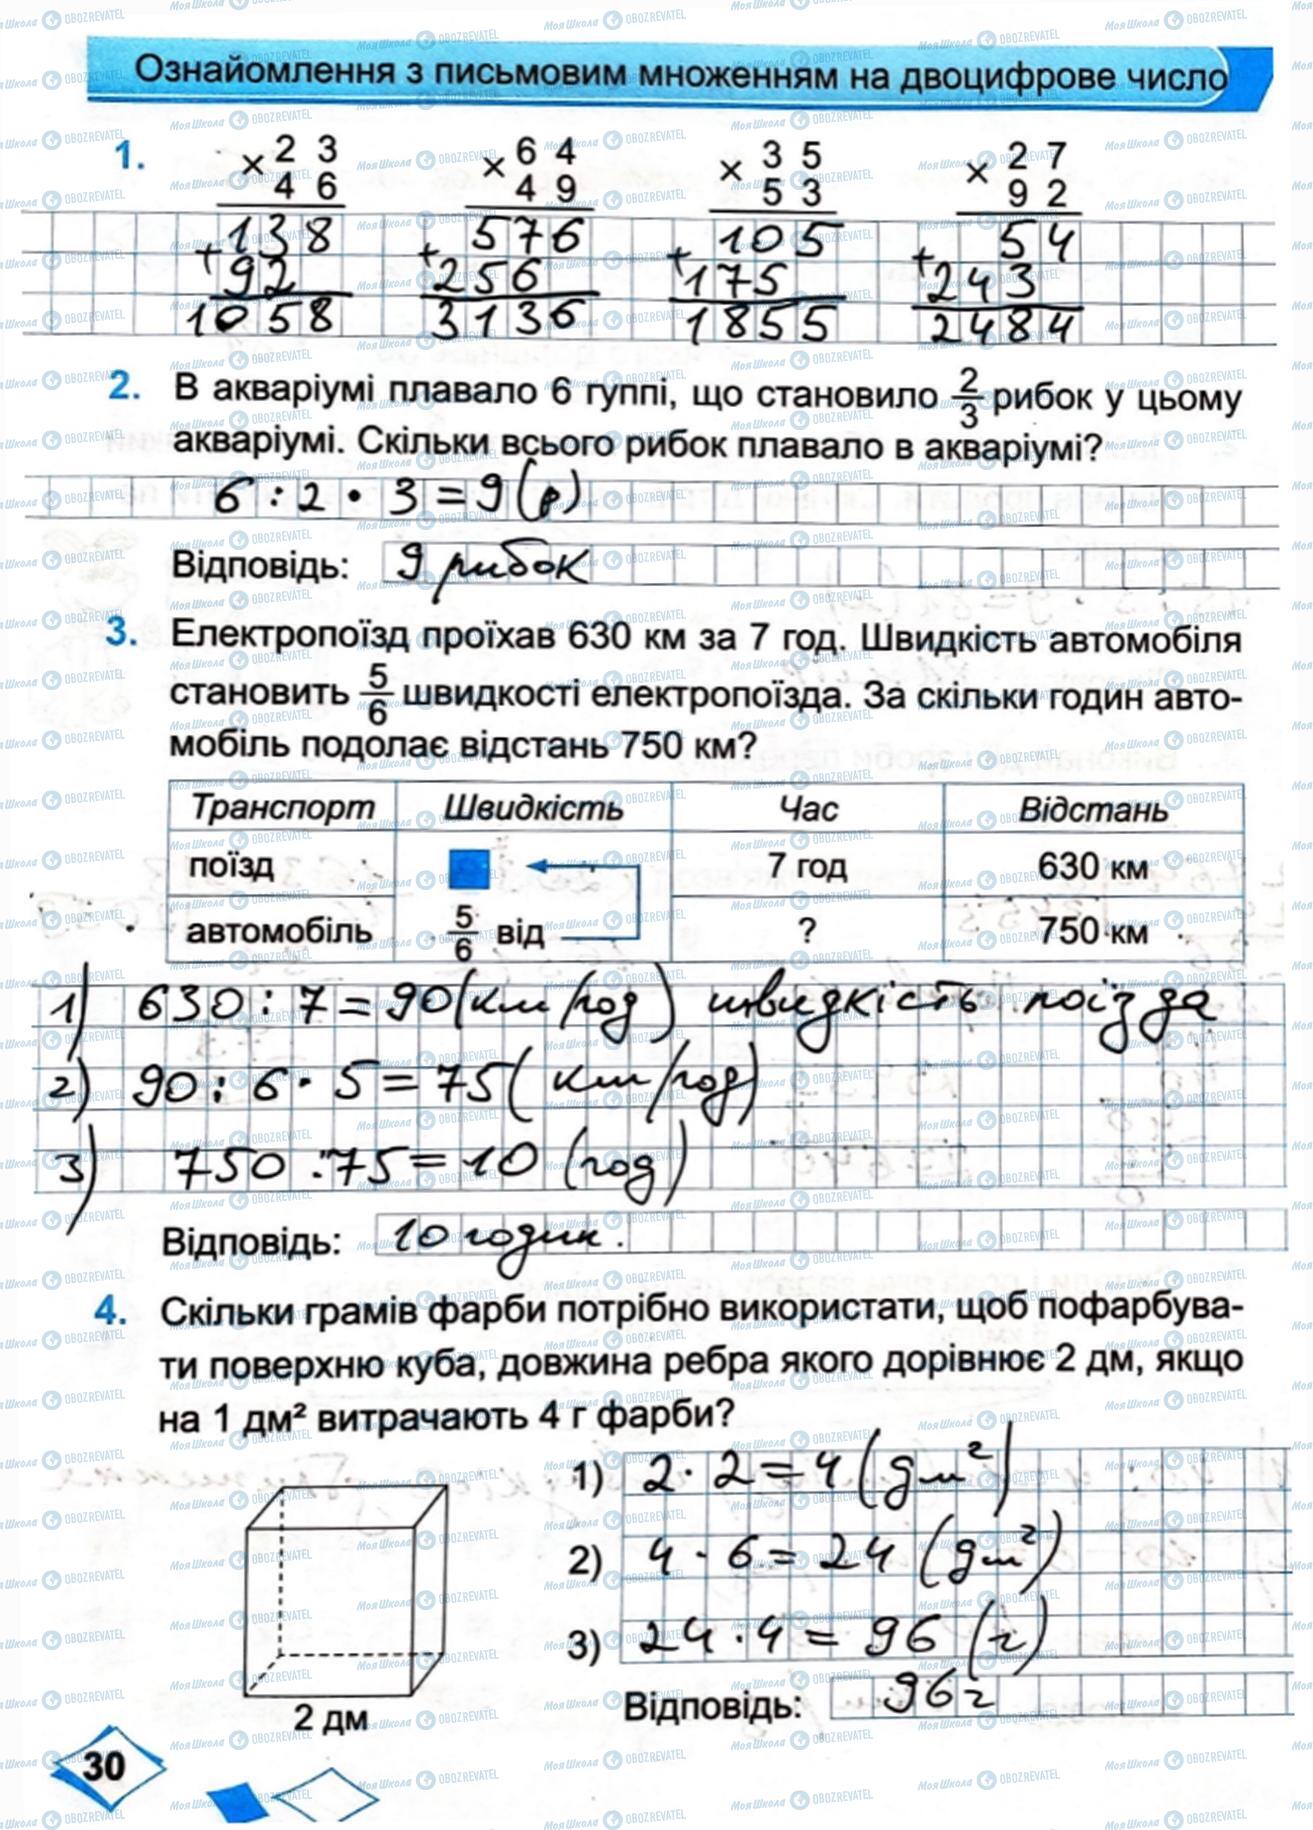 Ознайомлення з письмовим множенням на двоцифрове число
1. × 23 × 64 × 35 × 27
46 49 53 92
138 576 105 54
+ 92 + 256 + 175 + 243
1058 3136 1855 2484
2. В акваріумі плавало 6 гуппі, що становило 2/3 рибок у цьому
акваріумі. Скільки всього рибок плавало в акваріумі?
6 : 2 · 3 = 9 (р)
Відповідь: 9 рибок
3. Електропоїзд проїхав 630 км за 7 год. Швидкість автомобіля
становить 5/6 швидкості електропоїзда. За скільки годин авто-
мобіль подолає відстань 750 км?
Транспорт Швидкість Час Відстань
поїзд 7 год 630 км
автомобіль 5/6 від ? 750 км
1) 630 : 7 = 90 (км/год) швидкість поїзда
2) 90 : 6 · 5 = 75 (км/год)
3) 750 : 75 = 10 (год)
Відповідь: 10 годин.
4. Скільки грамів фарби потрібно використати, щоб пофарбува-
ти поверхню куба, довжина ребра якого дорівнює 2 дм, якщо
на 1 дм² витрачають 4 г фарби?
1) 2 · 2 = 4 (дм²)
2) 4 · 6 = 24 (дм²)
3) 24 · 4 = 96 (г)
2 дм
Відповідь: 96 г
30
МояШкола OBOZREVATEL